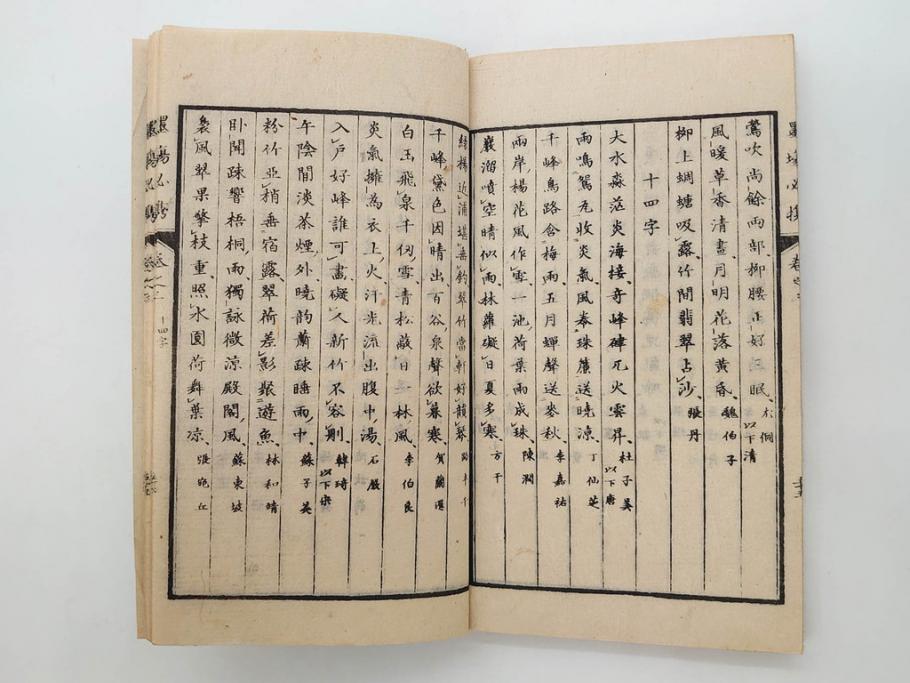 鶯吹尚餘兩部柳腰正好三眠 尤侗 以下清
風暖草香清晝月明花落黃昏 魏伯子
柳上蜩螗吸露竹間翡翠占沙 張丹
十四字
大水淼茫炎海接奇峰硉兀火雲昇 杜子美 以下唐
雨鳴鴛瓦收炎氣風卷珠簾送曉涼 丁仙芝
千峰鳥路含梅雨五月蟬聲送麥秋 李嘉祐
兩岸楊花風作雪一池荷葉雨成珠 陳潤
巖溜噴空晴似雨林蘿礙日夏多寒 方干
楊近浦堪垂釣翠竹當軒好韻琴
千峰黛色因晴出百谷泉聲欲暮寒 賀蘭
白玉飛泉千仞雪青松蔽日一林風 李伯良
炎氣擁為衣上火汗光流出腹中湯 石
入戶好峰誰可畫礙人新竹不容刪 韓琦 以下宋
午陰閒淡茶煙外曉韵蕭疎睡雨中 蘇子美
粉竹亞梢垂宿露翠荷差影聚遊魚 林和靖
臥聞疎響梧桐雨獨詠微涼殿閣風 蘇東坡
裊風翠果擎枝重照水圓荷舞葉涼 張
卷之
十四字